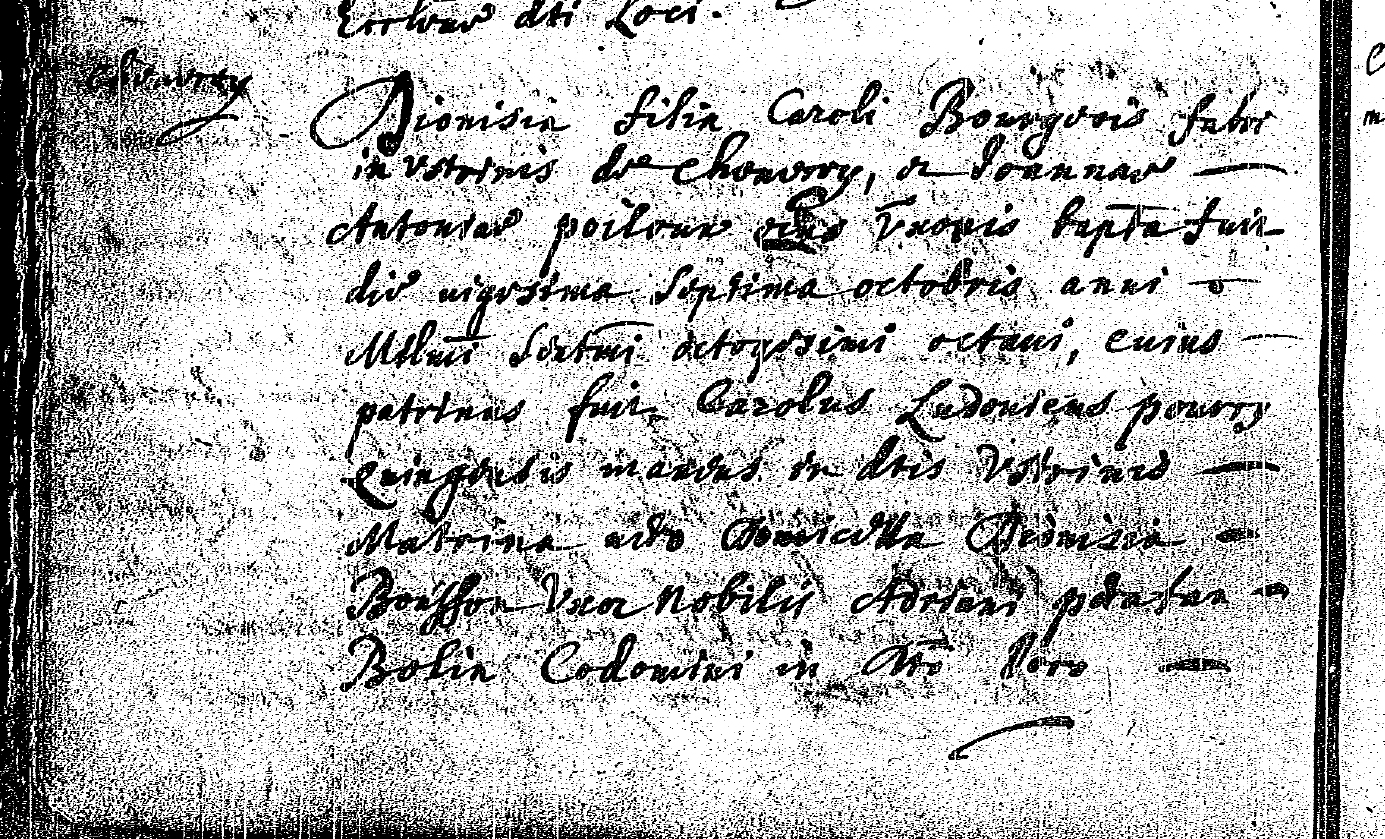 dti Loci.
Chouvroy
Dionisia filia Caroli Bourgeois faber
in Vstrinis de Chouvroy, et Joannae
Antoniae poileuue eius Vxoris bapta fuit
die uigesima Septima octobris anni
Mllmi Sextmi octogesimi octaui, cuius
patrinus fuit Carolus Ludouicus pouuroy
quingentis manens in dtis Vstrinis
Matrina uero Domicella Dionisia
Bouffon Vxor Nobilis Adriani
Bolin Codomini in dto loco